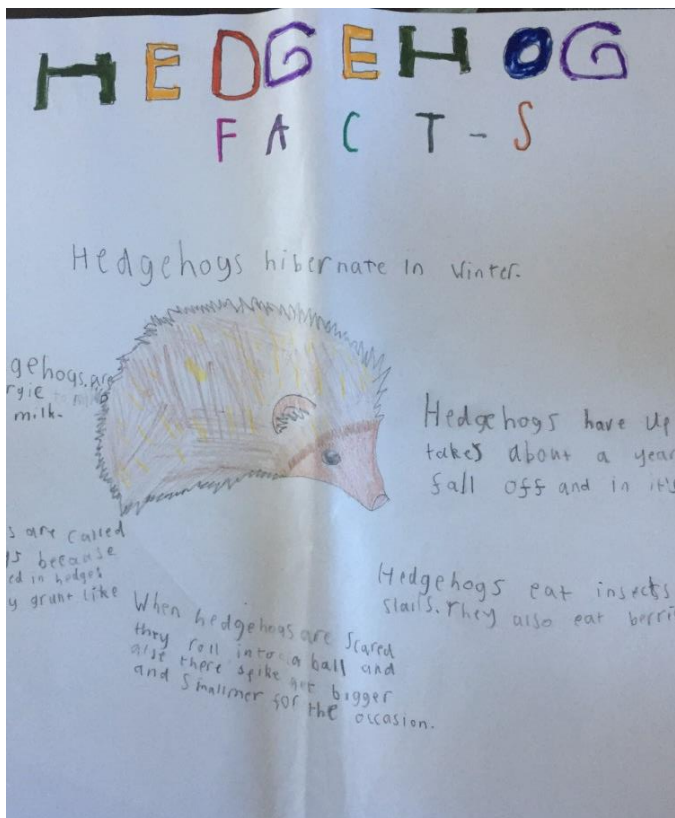 HEDGEHOG
FACT-S
Hedgehogs hibernate in winter.
gehogs are
rgic
milk.
Hedgehogs have up
takes about a year
fall off and in it's
s are called
s because
ed in hedges
y grunt like
Hedgehogs eat insects
slails. They also eat berri
When hedgehogs are scared
they roll into a ball and
also there spike get bigger
and smallmer for the occasion.